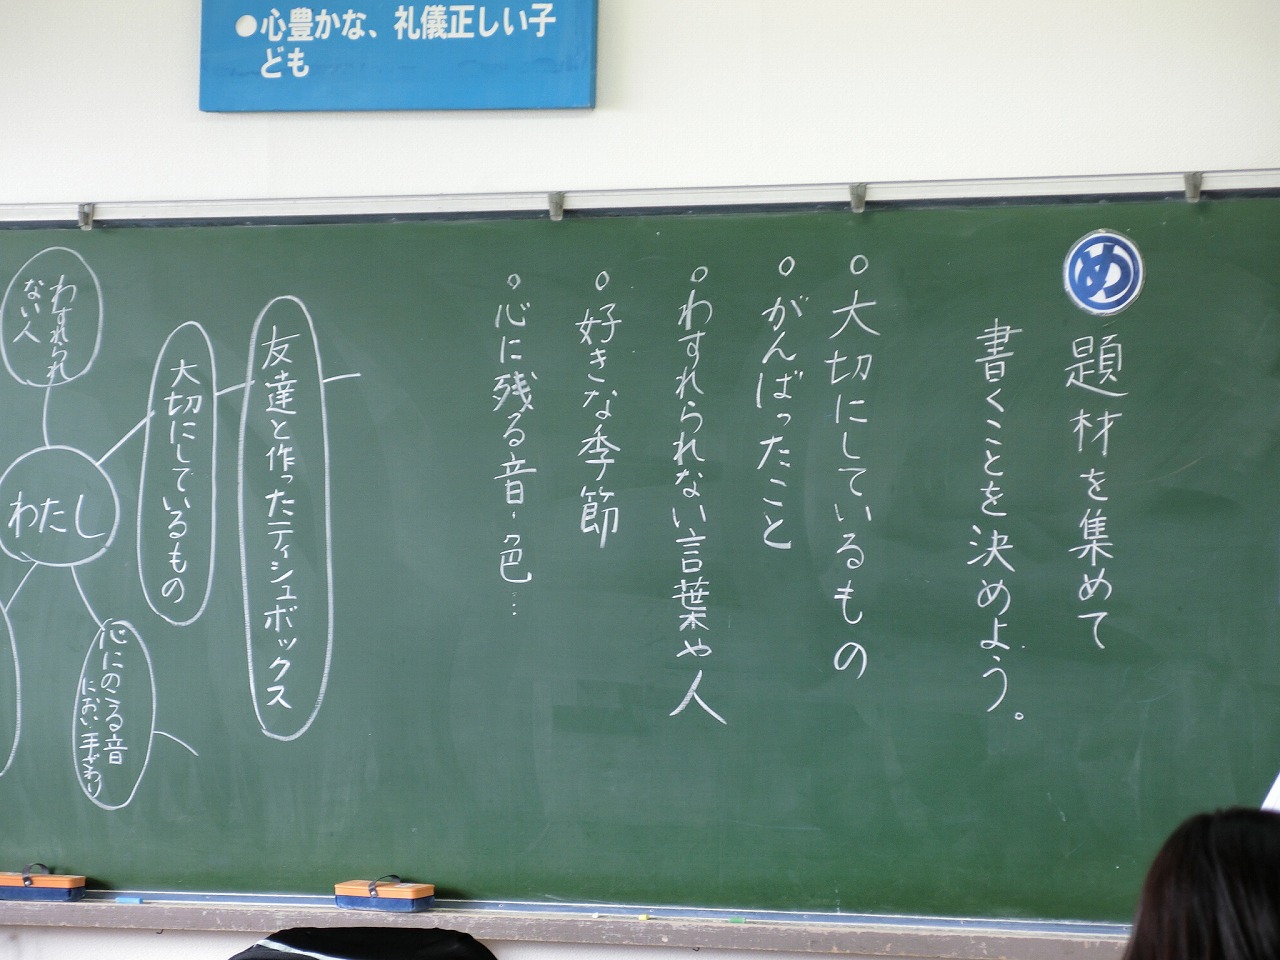 ●心豊かな、礼儀正しい子
ども
め
題材を集めて
書くことを決めよう。
○大切にしているもの
○がんばったこと
○わすれられない言葉や人
○好きな季節
○心に残る音・色…
友達と作ったティシュボックス
大切にしているもの
わすれられ
ない人
わたし
心にのこる音
におい手ざわり